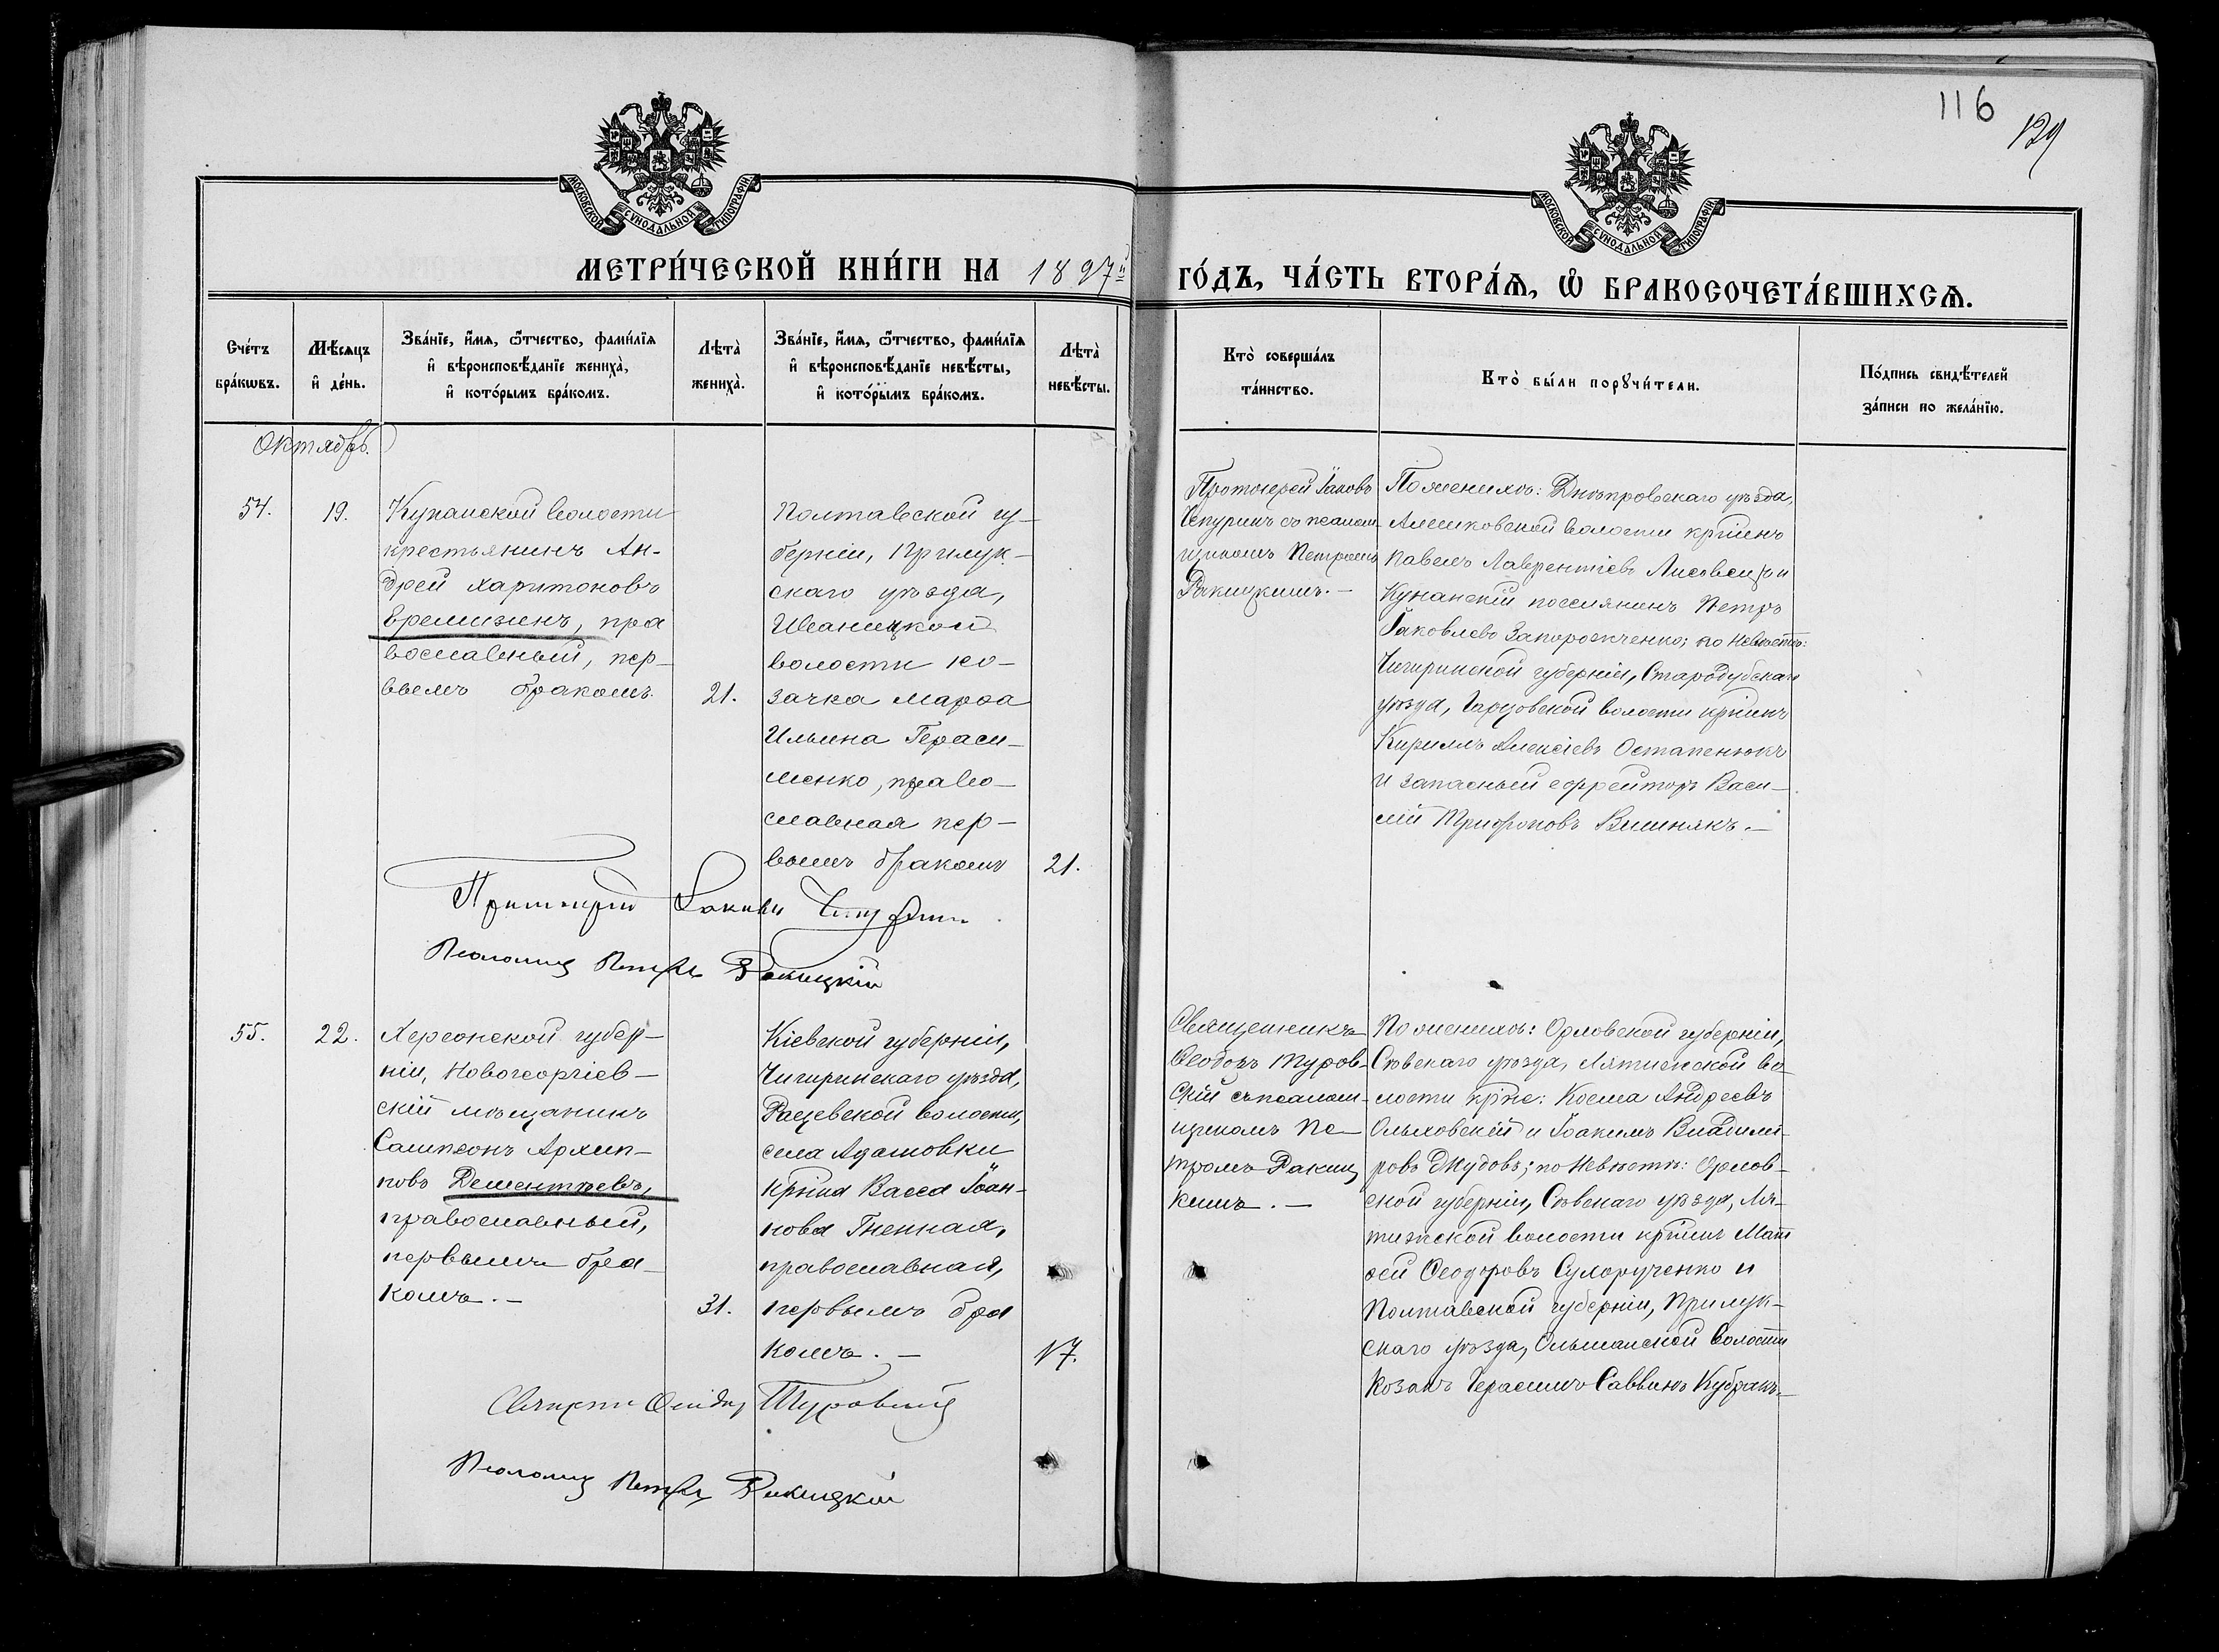 116
129
МОСКОВСКОЙ СУНОДАЛЬНОЙ ТИПОГРАФІИ.
МОСКОВСКОЙ СУНОДАЛЬНОЙ ТИПОГРАФІИ.
МЕТРИ́ЧЕСКОЙ КНИ́ГИ НА 1897й
ГО́ДЪ, ЧА́СТЬ ВТОРА́Ѧ, Ѡ҆ БРАКОСОЧЕТА́ВШИХСѦ.
Сче́тъ
бра́кѡвъ.
Мѣ́сѧцъ
и҆ де́нь.
Зва́нїе, и҆́мѧ, ѻ҆́тчество, фами́лїѧ
и҆ вѣроисповѣ́данїе жениха̀,
и҆ кото́рымъ бра́комъ.
Лѣта̀
жениха̀.
Зва́нїе, и҆́мѧ, ѻ҆́тчество, фами́лїѧ
и҆ вѣроисповѣ́данїе невѣ́сты,
и҆ кото́рымъ бра́комъ.
Лѣта̀
невѣ́сты.
Кто̀ соверша́лъ
та́инство.
Кто̀ бы́ли порꙋчи́тели.
По́дпись свидѣ́телей
за́писи по жела́нїю.
Октябрь.
54.
19.
крестьянинъ Ан-
дрей Харитоновъ
Еремизинъ, пра
вославный, пер-
вымъ бракомъ.
21.
Полтавской гу-
берніи, Прилук-
скаго уѣзда,
Иваницкой
волости ко-
зачка Марѳа
Ильина Гераси-
менко, право-
славная пер-
вымъ бракомъ
21.
Протоіерей Іаковъ
Чепуринъ съ псалом-
щикомъ Петромъ
Ракицкимъ.-
По женихѣ: Днѣпровскаго уѣзда,
Алешковской волости кр҃инъ
Павелъ Лаврентіевъ Лисовецъ и
поселянинъ Петръ
Іаковлевъ Запорожченко; по невѣстѣ:
губерніи, Стародубскаго
уѣзда, волости кр҃инъ
Кириллъ Алексіевъ Остапенюкъ
и запасный ефрейторъ Васи-
лій Трифоновъ Вишнякъ.-
Протоіерей Іаковъ Чепуринъ
Псаломщ Петръ Ракицкій
55.
22.
Херсонской губер-
ніи, Новогеоргіев-
скій мѣщанинъ
Сампсонъ Архип-
повъ Дементьевъ,
православный,
первымъ бра-
комъ.-
31.
Кіевской губерніи,
Чигиринскаго уѣзда,
волости,
села Адамовки
кр҃нка Васса Іоан-
нова Гненная,
православная,
первымъ бра
комъ.-
17.
Священникъ
Ѳеодоръ Туров-
скій съ псалом-
щикомъ Пе-
тромъ Ракиц
кимъ.-
По женихѣ: Орловской губерніи,
Сѣвскаго уѣзда, во-
лости кр҃не: Косма Андреевъ
Ольховскій и Іоакимъ Владими-
ровъ Жудовъ; по невѣстѣ: Орлов-
ской губерніи, Сѣвскаго уѣзда, Ля-
тижской волости кр҃инъ Мат
ѳей Ѳеодоровъ Сухорученко и
Полтавской губерніи, Прилук-
скаго уѣзда, Ольшанской волости
козакъ Герасимъ Саввинъ Кубракъ.-
Священ Ѳеодоръ Туровскій
Псаломщ Петръ Ракицкій